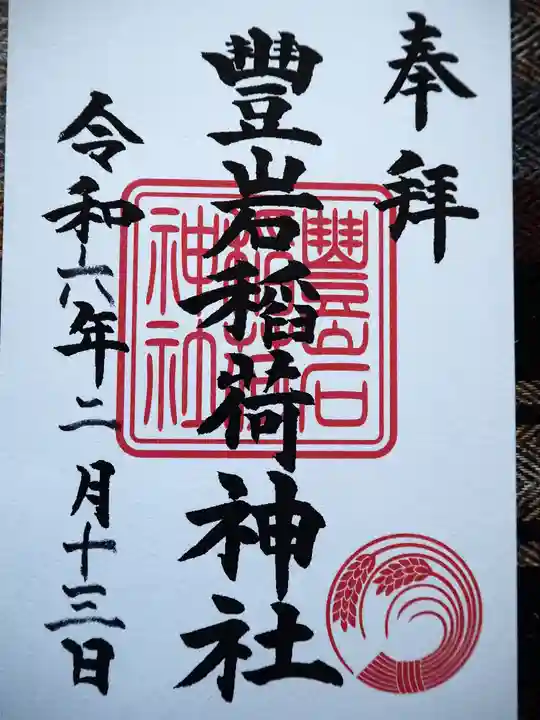 奉拝
豐岩稲荷神社
豐岩
稲荷
神社
令和六年二月十三日